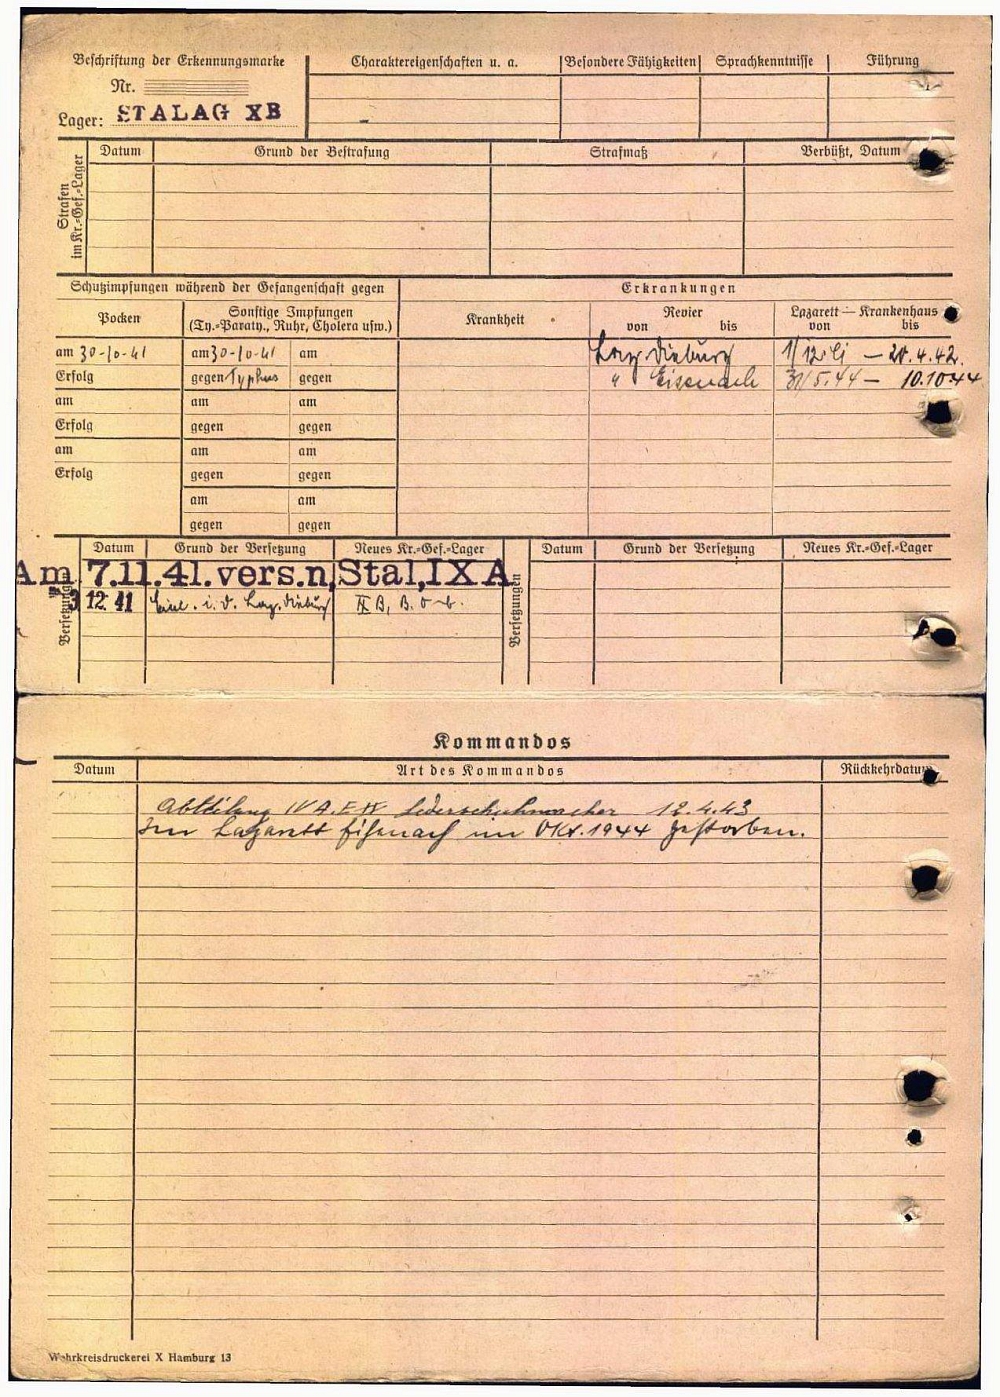 Beschriftung der Erkennungsmarke
Nr.
Lager: STALAG XB
Charaktereigenschaften u. a.
Besondere Fähigkeiten
Sprachkenntnisse
Führung
Strafen im Kr.=Gef.=Lager
Datum
Grund der Bestrafung
Strafmaß
Verbüßt, Datum
Schutzimpfungen während der Gefangenschaft gegen
Erkrankungen
Pocken
Sonstige Impfungen
(Ty.=Paraty., Ruhr, Cholera usw.)
Krankheit
Revier
von bis
Lazarett — Krankenhaus
von bis
am 30-10-41 am 30-10-41 am Laz. Dieburg — 20.4.42.
Erfolg gegen Typhus gegen " Eisenach 31/5.44 — 10.10.44
am am am
Erfolg gegen gegen
am am am
Erfolg gegen gegen
am am
gegen gegen
Versetzungen
Datum Grund der Versetzung Neues Kr.=Gef.=Lager
Am 7.11.41.vers.n,Stal,IX A
3 12. 41 i. d. Laz. Dieburg IX B, B. O-b.
Versetzungen
Datum Grund der Versetzung Neues Kr.=Gef.=Lager
Kommandos
Datum Art des Kommandos Rückkehrdatum
Abteilung IV A. Lederschuhmacher 12.4.43
Im Lazarett Eisenach im Okt. 1944 gestorben.
Wehrkreisdruckerei X Hamburg 13